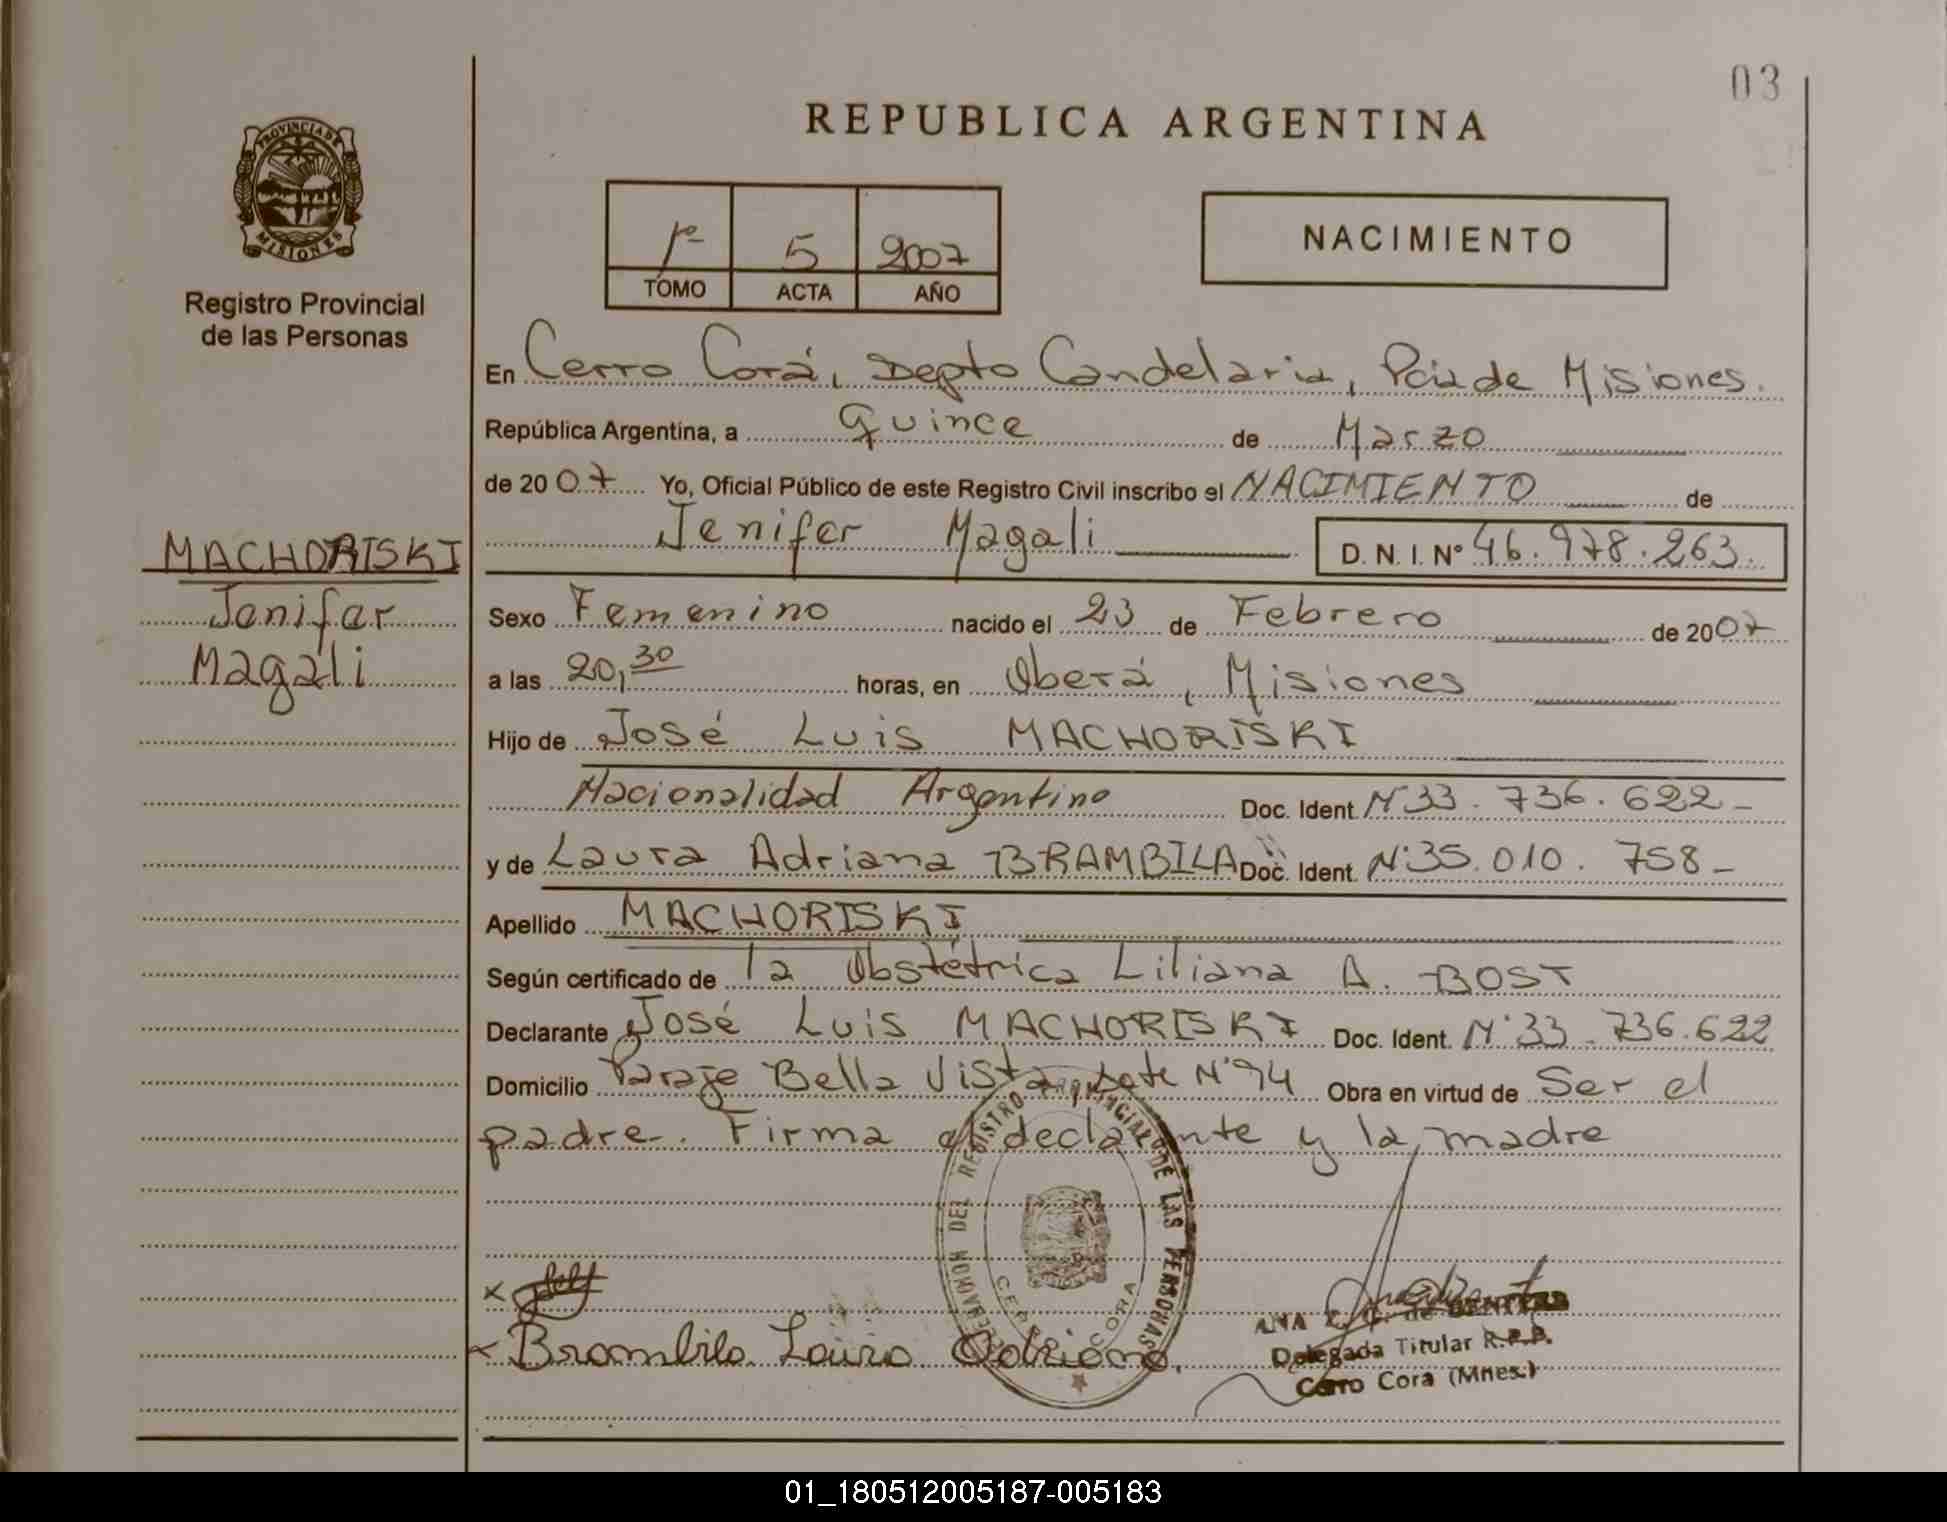 03
REPUBLICA ARGENTINA
PROVINCIA DE
MISIONES
Registro Provincial
de las Personas
1º 5 2007
TOMO ACTA AÑO
NACIMIENTO
En Cerro Corá, Depto Candelaria, Pcia de Misiones.
República Argentina, a Quince de Marzo
de 2007 Yo, Oficial Público de este Registro Civil inscribo el NACIMIENTO de
Jenifer Magali D. N. I. Nº 46.978.263.
MACHORISKI
Jenifer
Magali
Sexo Femenino nacido el 23 de Febrero de 2007
a las 20,30 horas, en Oberá, Misiones
Hijo de José Luis MACHORISKI
Nacionalidad Argentino Doc. Ident. Nº33.736.622-
y de Laura Adriana BRAMBILA Doc. Ident. Nº35.010.758-
Apellido MACHORISKI
Según certificado de la Obstétrica Liliana A. BOST
Declarante José Luis MACHORISKI Doc. Ident. Nº33.736.622
Domicilio Paraje Bella Vista Lote Nº94 Obra en virtud de Ser el
padre. Firma el declarante y la madre
DEL REGISTRO PROVINCIAL DE LAS PERSONAS
CERRO CORA
x
x Brambila Laura Adriana.
ANA de
Delegada Titular R.P.P.
Cerro Cora (Mnes.)
01_180512005187-005183